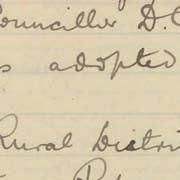 Councillor D.C
s adopted
Rural Distri